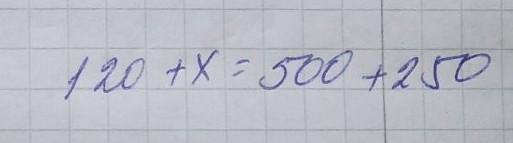 120 + x = 500 + 250